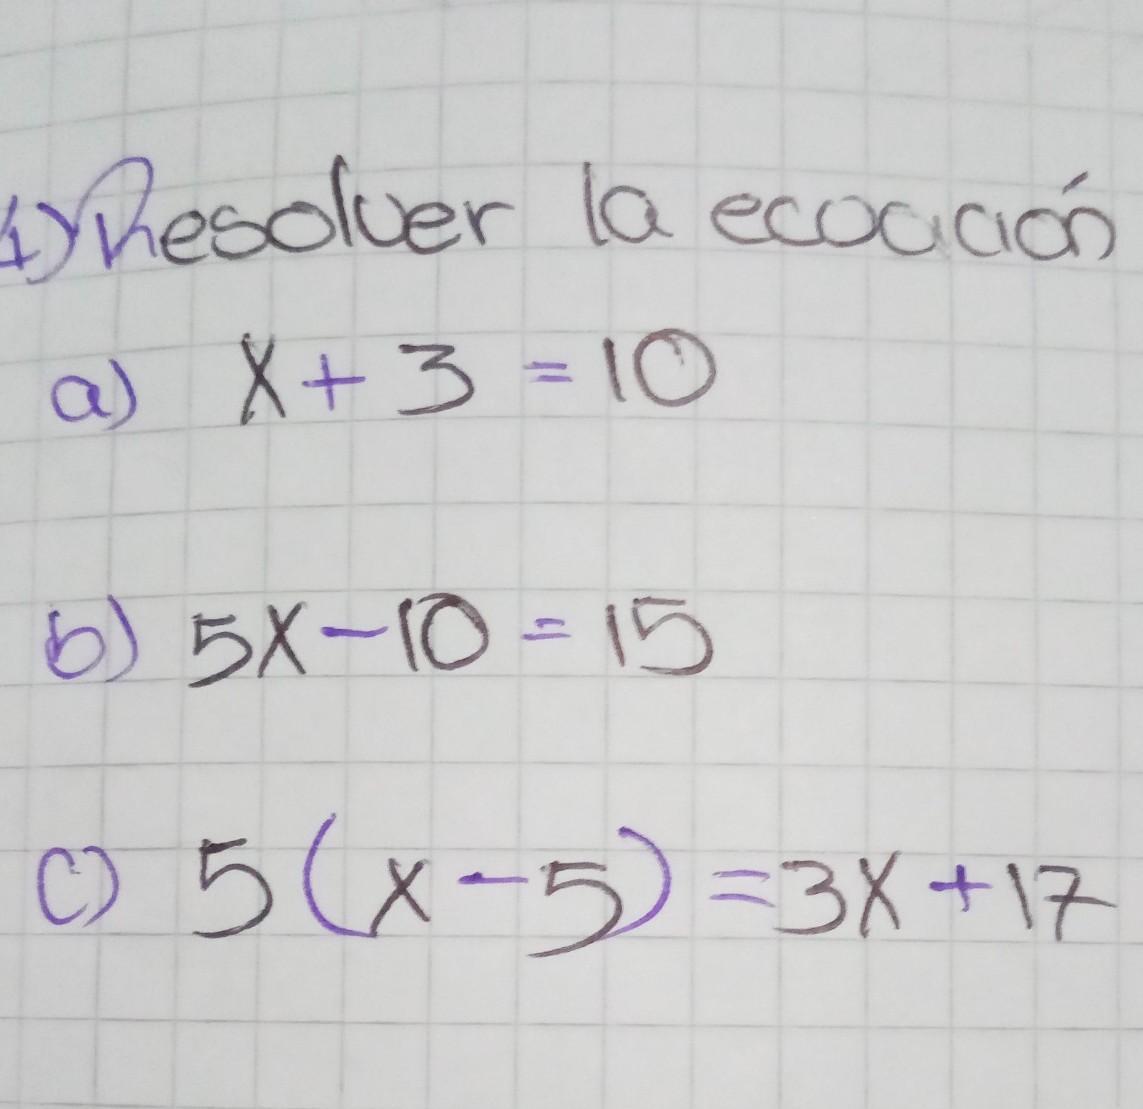 1) Resolver la ecoación
a) x + 3 = 10
b) 5x - 10 = 15
c) 5 (x - 5) = 3x + 17